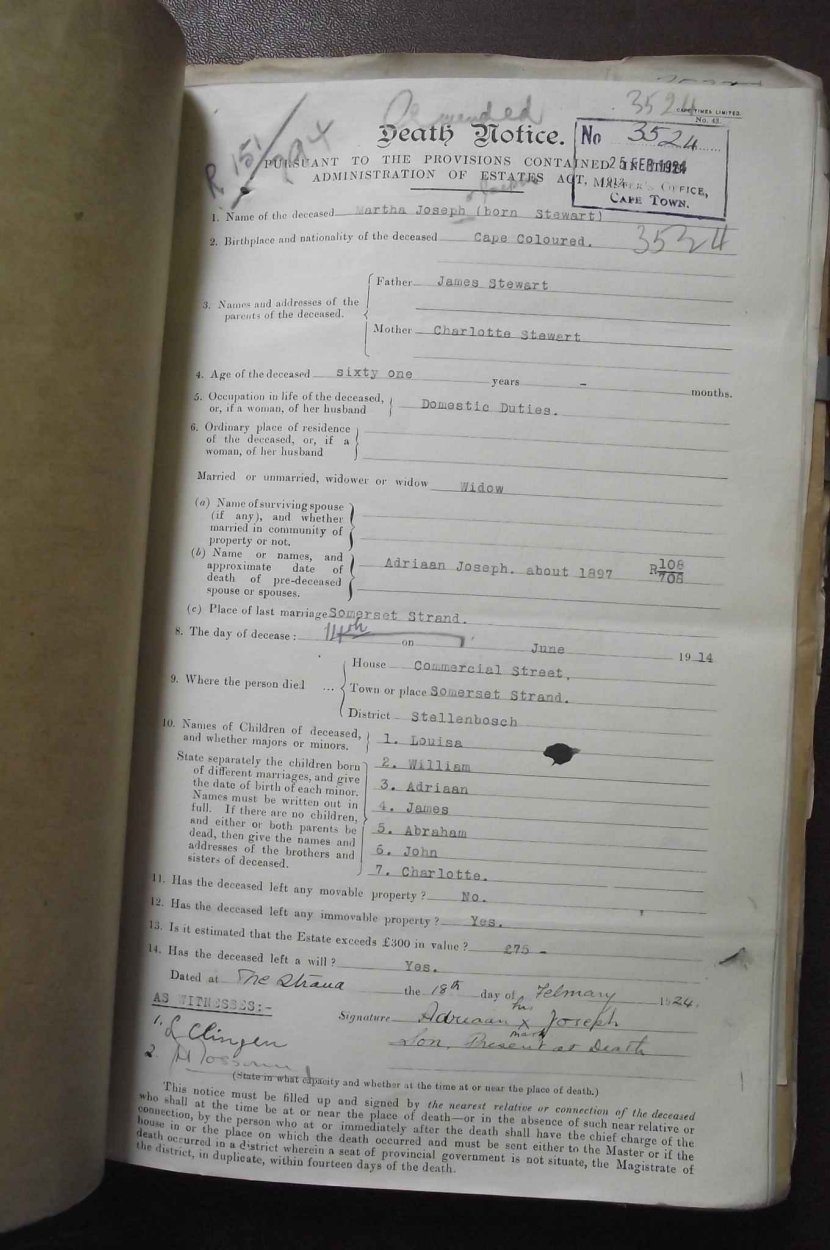 Amended
3524
CAPE TIMES LIMITED.
No. 43.
Death Notice.
No 3524
25 FEB 1924
MASTER'S OFFICE,
CAPE TOWN.
PURSUANT TO THE PROVISIONS CONTAINED IN THE
ADMINISTRATION OF ESTATES ACT, 1913.
1. Name of the deceased Martha Joseph (born Stewart)
2. Birthplace and nationality of the deceased Cape Coloured.
3524
3. Names and addresses of the
parents of the deceased.
Father James Stewart
Mother Charlotte Stewart
4. Age of the deceased sixty one years - months.
5. Occupation in life of the deceased,
or, if a woman, of her husband
Domestic Duties.
6. Ordinary place of residence
of the deceased, or, if a
woman, of her husband
Married or unmarried, widower or widow Widow
(a) Name of surviving spouse
(if any), and whether
married in community of
property or not.
(b) Name or names, and
approximate date of
death of pre-deceased
spouse or spouses.
Adriaan Joseph. about 1897 R108/708
(c) Place of last marriage Somerset Strand.
8. The day of decease: 14th on June 1914
9. Where the person died ...
House Commercial Street,
Town or place Somerset Strand.
District Stellenbosch
10. Names of Children of deceased,
and whether majors or minors.
State separately the children born
of different marriages, and give
the date of birth of each minor.
Names must be written out in
full. If there are no children,
and either or both parents be
dead, then give the names and
addresses of the brothers and
sisters of deceased.
1. Louisa
2. William
3. Adriaan
4. James
5. Abraham
6. John
7. Charlotte.
11. Has the deceased left any movable property? No.
12. Has the deceased left any immovable property? Yes.
13. Is it estimated that the Estate exceeds £300 in value? £75 -
14. Has the deceased left a will? Yes.
Dated at The Strand the 18th day of February 1924.
AS WITNESSES:-
his
Signature Adriaan x Joseph
mark
1. L Clingen
Son, Present at Death
2.
(State in what capacity and whether at the time at or near the place of death.)
This notice must be filled up and signed by the nearest relative or connection of the deceased
who shall at the time be at or near the place of death—or in the absence of such near relative or
connection, by the person who at or immediately after the death shall have the chief charge of the
house in or the place on which the death occurred and must be sent either to the Master or if the
death occurred in a district wherein a seat of provincial government is not situate, the Magistrate of
the district, in duplicate, within fourteen days of the death.